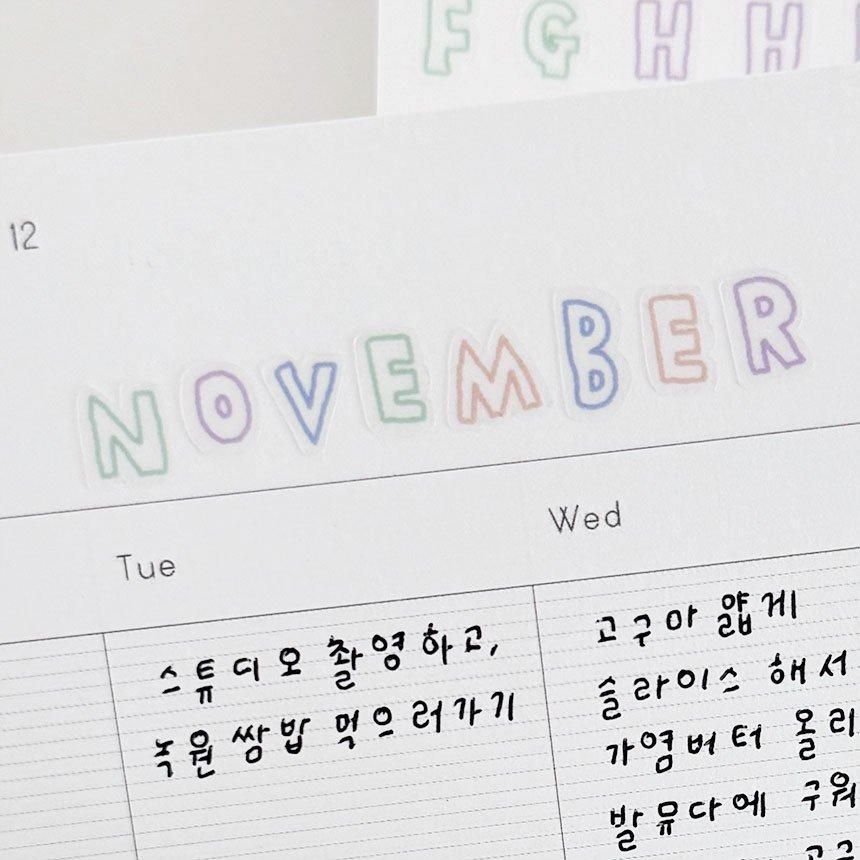 F G H H
12
NOVEMBER
Tue
Wed
스튜디오 촬영하고,
녹원쌈밥 먹으러가기
고구마 얇게
슬라이스 해서
가염버터 올리
발뮤다에 구워